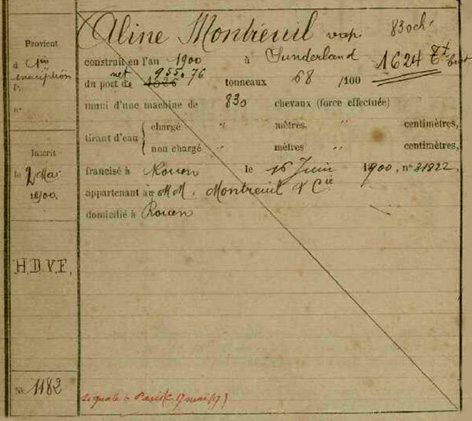 Aline Montreuil vap. 830ch.
Provient
à 1re
inscription
F.
n°
construit en l'an 1900 à Sunderland 1624 Tx brut
du port de net 955,76 tonneaux 68 /100
muni d'une machine de 830 chevaux (force effectuée)
tirant d'eau { chargé " mètres. " centimètres,
non chargé " mètres " centimètres,
Inscrit
le 2 Mai
1900.
francisé à Rouen le 16 Juin 1900, n° 31822,
appartenant à MM. Montreuil & Cie
domicilié à Rouen
H.D.V.F.
N° 1182
Signalé à Paris (C. 17 mai 17)